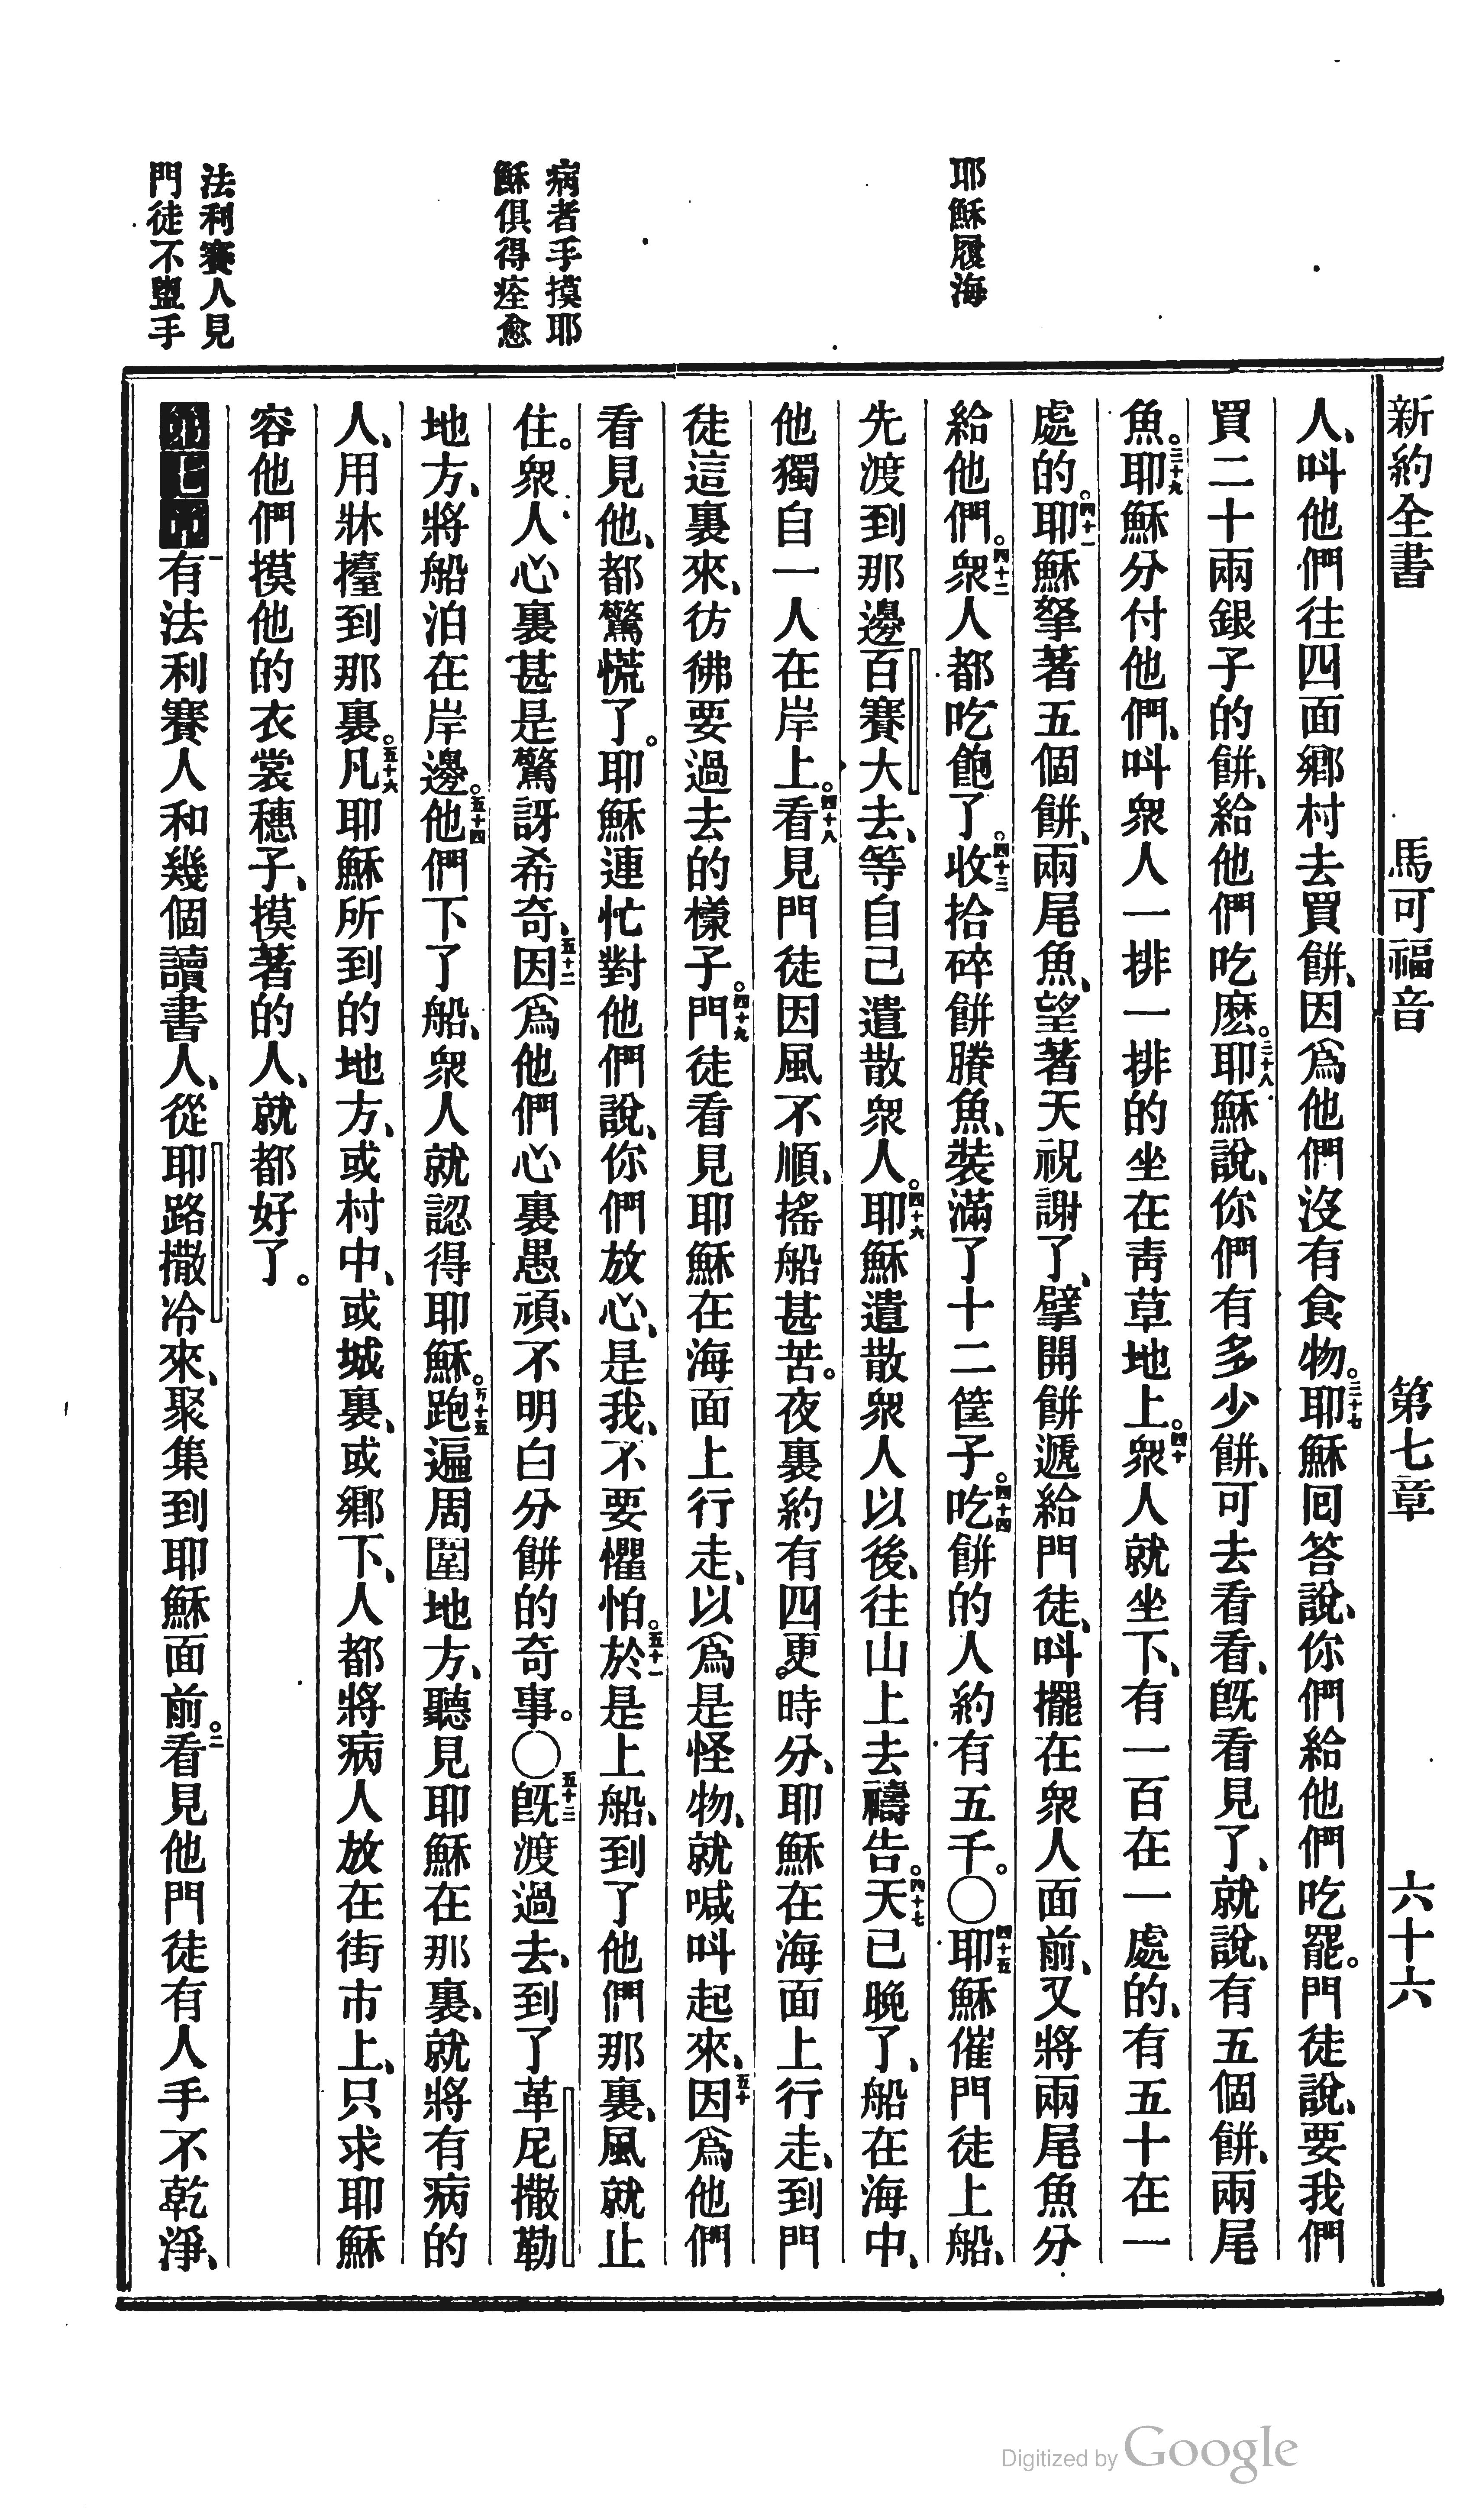 新約全書 馬可福音 第七章 六十六
耶穌履海
病者手摸耶
穌俱得痊愈
法利賽人見
門徒不盥手
人、叫他們往四面鄉村去買餅、因爲他們沒有食物。三十七耶穌回答說、你們給他們吃罷。門徒說、要我們
買二十兩銀子的餅、給他們吃麽。三十八耶穌說、你們有多少餅、可去看看、旣看見了、就說、有五個餅、兩尾
魚。三十九耶穌分付他們、叫衆人一排一排的坐在靑草地上。四十衆人就坐下、有一百在一處的、有五十在一
處的。四十一耶穌拏著五個餅、兩尾魚、望著天祝謝了、擘開餅遞給門徒、叫擺在衆人面前、又將兩尾魚分
給他們。四十二衆人都吃飽了。四十三收拾碎餅賸魚、裝滿了十二筐子。四十四吃餅的人約有五千。〇四十五耶穌催門徒上船、
先渡到那邊百賽大去、等自己遣散衆人。四十六耶穌遣散衆人以後、往山上去禱告。四十七天已晚了、船在海中、
他獨自一人在岸上。四十八看見門徒因風不順、搖船甚苦。夜裏約有四更。時分、耶穌在海面上行走、到門
徒這裏來、彷彿要過去的樣子。四十九門徒看見耶穌在海面上行走、以爲是怪物、就喊叫起來、五十因爲他們
看見他、都驚慌了。耶穌連忙對他們說、你們放心、是我、不要懼怕。五十一於是上船、到了他們那裏、風就止
住。衆人心裏甚是驚訝希奇、五十二因爲他們心裏愚頑、不明白分餅的奇事。〇五十三旣渡過去、到了革尼撒勒
地方、將船泊在岸邊。五十四他們下了船、衆人就認得耶穌。五十五跑遍周圍地方、聽見耶穌在那裏、就將有病的
人、用牀擡到那裏。五十六凡耶穌所到的地方、或村中、或城裏、或鄉下、人都將病人放在街市上、只求耶穌
容他們摸他的衣裳穗子、摸著的人、就都好了。
第七章一有法利賽人和幾個讀書人、從耶路撒冷來、聚集到耶穌面前。二看見他門徒有人手不乾淨、
Digitized by Google